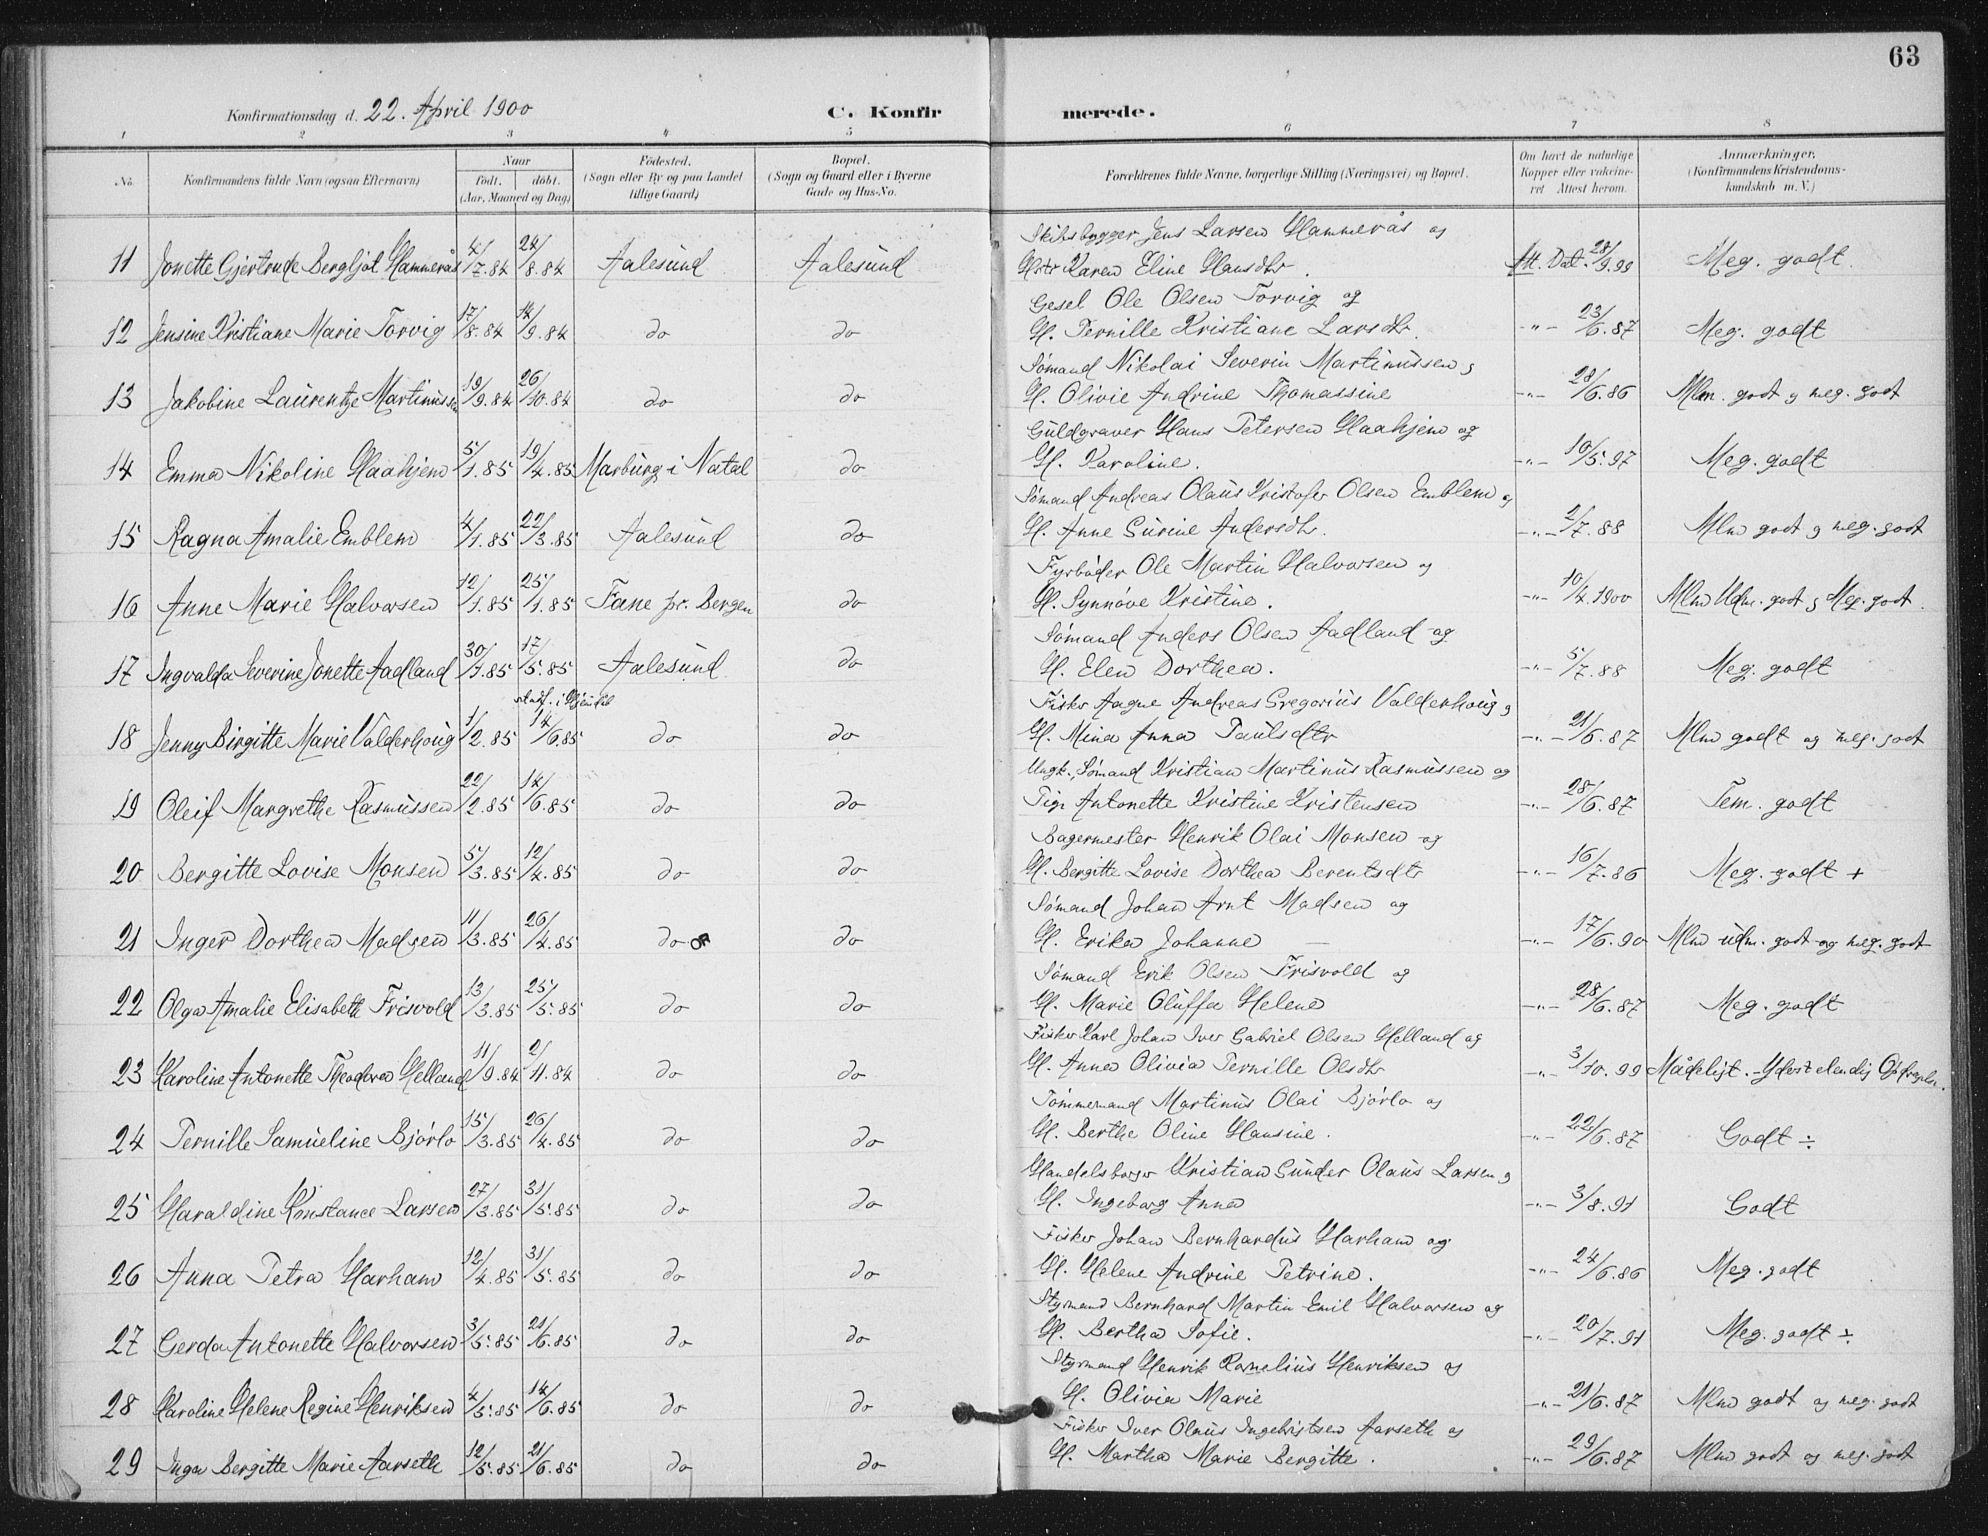 63
Konfirmationsdag d. 22. April 1900 C. Konfirmerede.
1 2 3 4 5 6 7 8
No. Konfirmandens fulde Navn (ogsaa Efternavn) Naar født. døbt. (Aar, Maaned og Dag) Fødested. (Sogn eller By og paa Landet tillige Gaard) Bopæl. (Sogn og Gaard eller i Byerne Gade og Hus-No. Forældrenes fulde Navne, borgerlige Stilling (Næringsvei) og Bopæl. Om havt de naturlige Kopper eller vakcineret. Attest herom. Anmærkninger. (Konfirmandens Kristendomskundskab m. V.)
Skibsbygger Jens Larsen Hammerås og
11 Jonette Gjertrude Bergljot Hammerås 4/7.84 24/8.84 Aalesund Aalesund Hstr Karen Eline Hansdtr. Att. Dat. 28/9.99 Meg. godt.
Gesel Ole Olsen Torvig og
12 Jensine Kristiane Marie Torvig 17/8.84 14/9.84 do do H. Pernille Kristiane Larsdtr. -"- 23/6.87 Meg. godt
Sømand Nikolai Severin Martinussen og
13 Jakobine Laurentze Martinussen 19/9.84 26/10.84 do do H. Olivie Andrine Thomassine -"- 28/6.86 Mlm. godt og meg. godt
Guldgraver Hans Petersen Haahjem og
14 Emma Nikoline Haahjem 5/1.85 19/4.85 Marburg i Natal do H. Karoline. -"- 10/5.97 Meg. godt
Sømand Andreas Olaus Kristofer Olsen Emblem og
15 Ragna Amalie Emblem 4/1.85 22/3.85 Aalesund do H. Anne Gurine Andersdtr. -"- 2/7.88 Mlm godt og meg. godt
Fyrbøder Ole Martin Halvorsen og
16 Anne Marie Halvorsen 12/1.85 25/1.85 Fane pr. Bergen do H. Synnøve Kristine. -"- 10/4.1900 Mlm Udm. godt og Meg. godt.
Sømand Anders Olsen Aadland og
17 Ingvalda Severine Jonette Aadland 30/1.85 17/5.85 Aalesund do H. Elen Dorthea. -"- 5/7.88 Meg. godt
Fisker Aagne Andreas Gregorius Valderhoug og
18 Jenny Birgitte Marie Valderhoug 1/2.85 14/6.85 do do H. Mina Anna Paulsdtr -"- 21/6.87 Mlm godt og meg. godt
Ungk., Sømand Kristian Martinus Rasmussen og
19 Oleif Margrethe Rasmussen 22/2.85 14/6.85 do do Pige Antonette Kristine Kristensen -"- 28/6.87 Tem. godt
Bagermester Henrik Olai Monsen og
20 Bergitte Lovise Monsen 5/3.85 12/4.85 do do H. Bergitte Lovise Dorthea Berentsdtr -"- 16/7.86 Meg. godt +
Sømand Johan Arnt Madsen og
21 Inger Dorthea Madsen 11/3.85 26/4.85 do do H. Erika Johanne -"- 17/6.90 Mlm udm. godt og meg. godt
Sømand Erik Olsen Frisvold og
22 Olga Amalie Elisabeth Frisvold 13/3.85 25/5.85 do do H. Marie Oluffa Helene -"- 28/6.87 Meg. godt
Fisker Karl Johan Iver Gabriel Olsen Helland og
23 Karoline Antonette Theodora Helland 11/9.84 2/11.84 do do H. Anna Olivia Pernille Olsdtr -"- 3/10.99 Mådeligt. Yderst elendig
Tømmermand Martinus Olai Bjørlo og
24 Pernille Samueline Bjørlo 15/3.85 26/4.85 do do H. Berthe Oline Hansine. -"- 22/6.87 Godt ÷
Handelsborger Kristian Gunder Olaus Larsen og
25 Haraldine Konstance Larsen 27/3.85 31/5.85 do do H. Ingeborg Anna -"- 3/8.91 Godt
Fisker Johan Bernhardus Harham og
26 Anna Petra Harham 12/4.85 31/5.85 do do H. Helene Andrine Petrine. -"- 24/6.86 Meg. godt
Styrmand Bernhard Martin Emil Halvorsen og
27 Gerda Antonette Halvorsen 3/5.85 21/6.85 do do H. Bertha Sofie. -"- 20/7.91 Meg. godt ÷
Styrmand Henrik Kornelius Henriksen og
28 Karoline Helene Regine Henriksen 4/5.85 14/6.85 do do H. Olivia Marie -"- 21/6.87 Mlm godt og meg. godt
Fisker Iver Olaus Ingebrigtsen Aarseth og
29 Inga Bergitte Marie Aarseth 12/5.85 21/6.85 do do H. Martha Marie Bergitte. -"- 29/6.87 Mlm godt og meg. godt